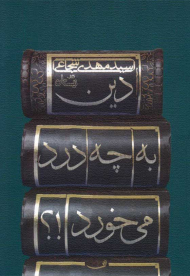 سید مهدی شجاعی
دین
به چه درد
می خورد !؟